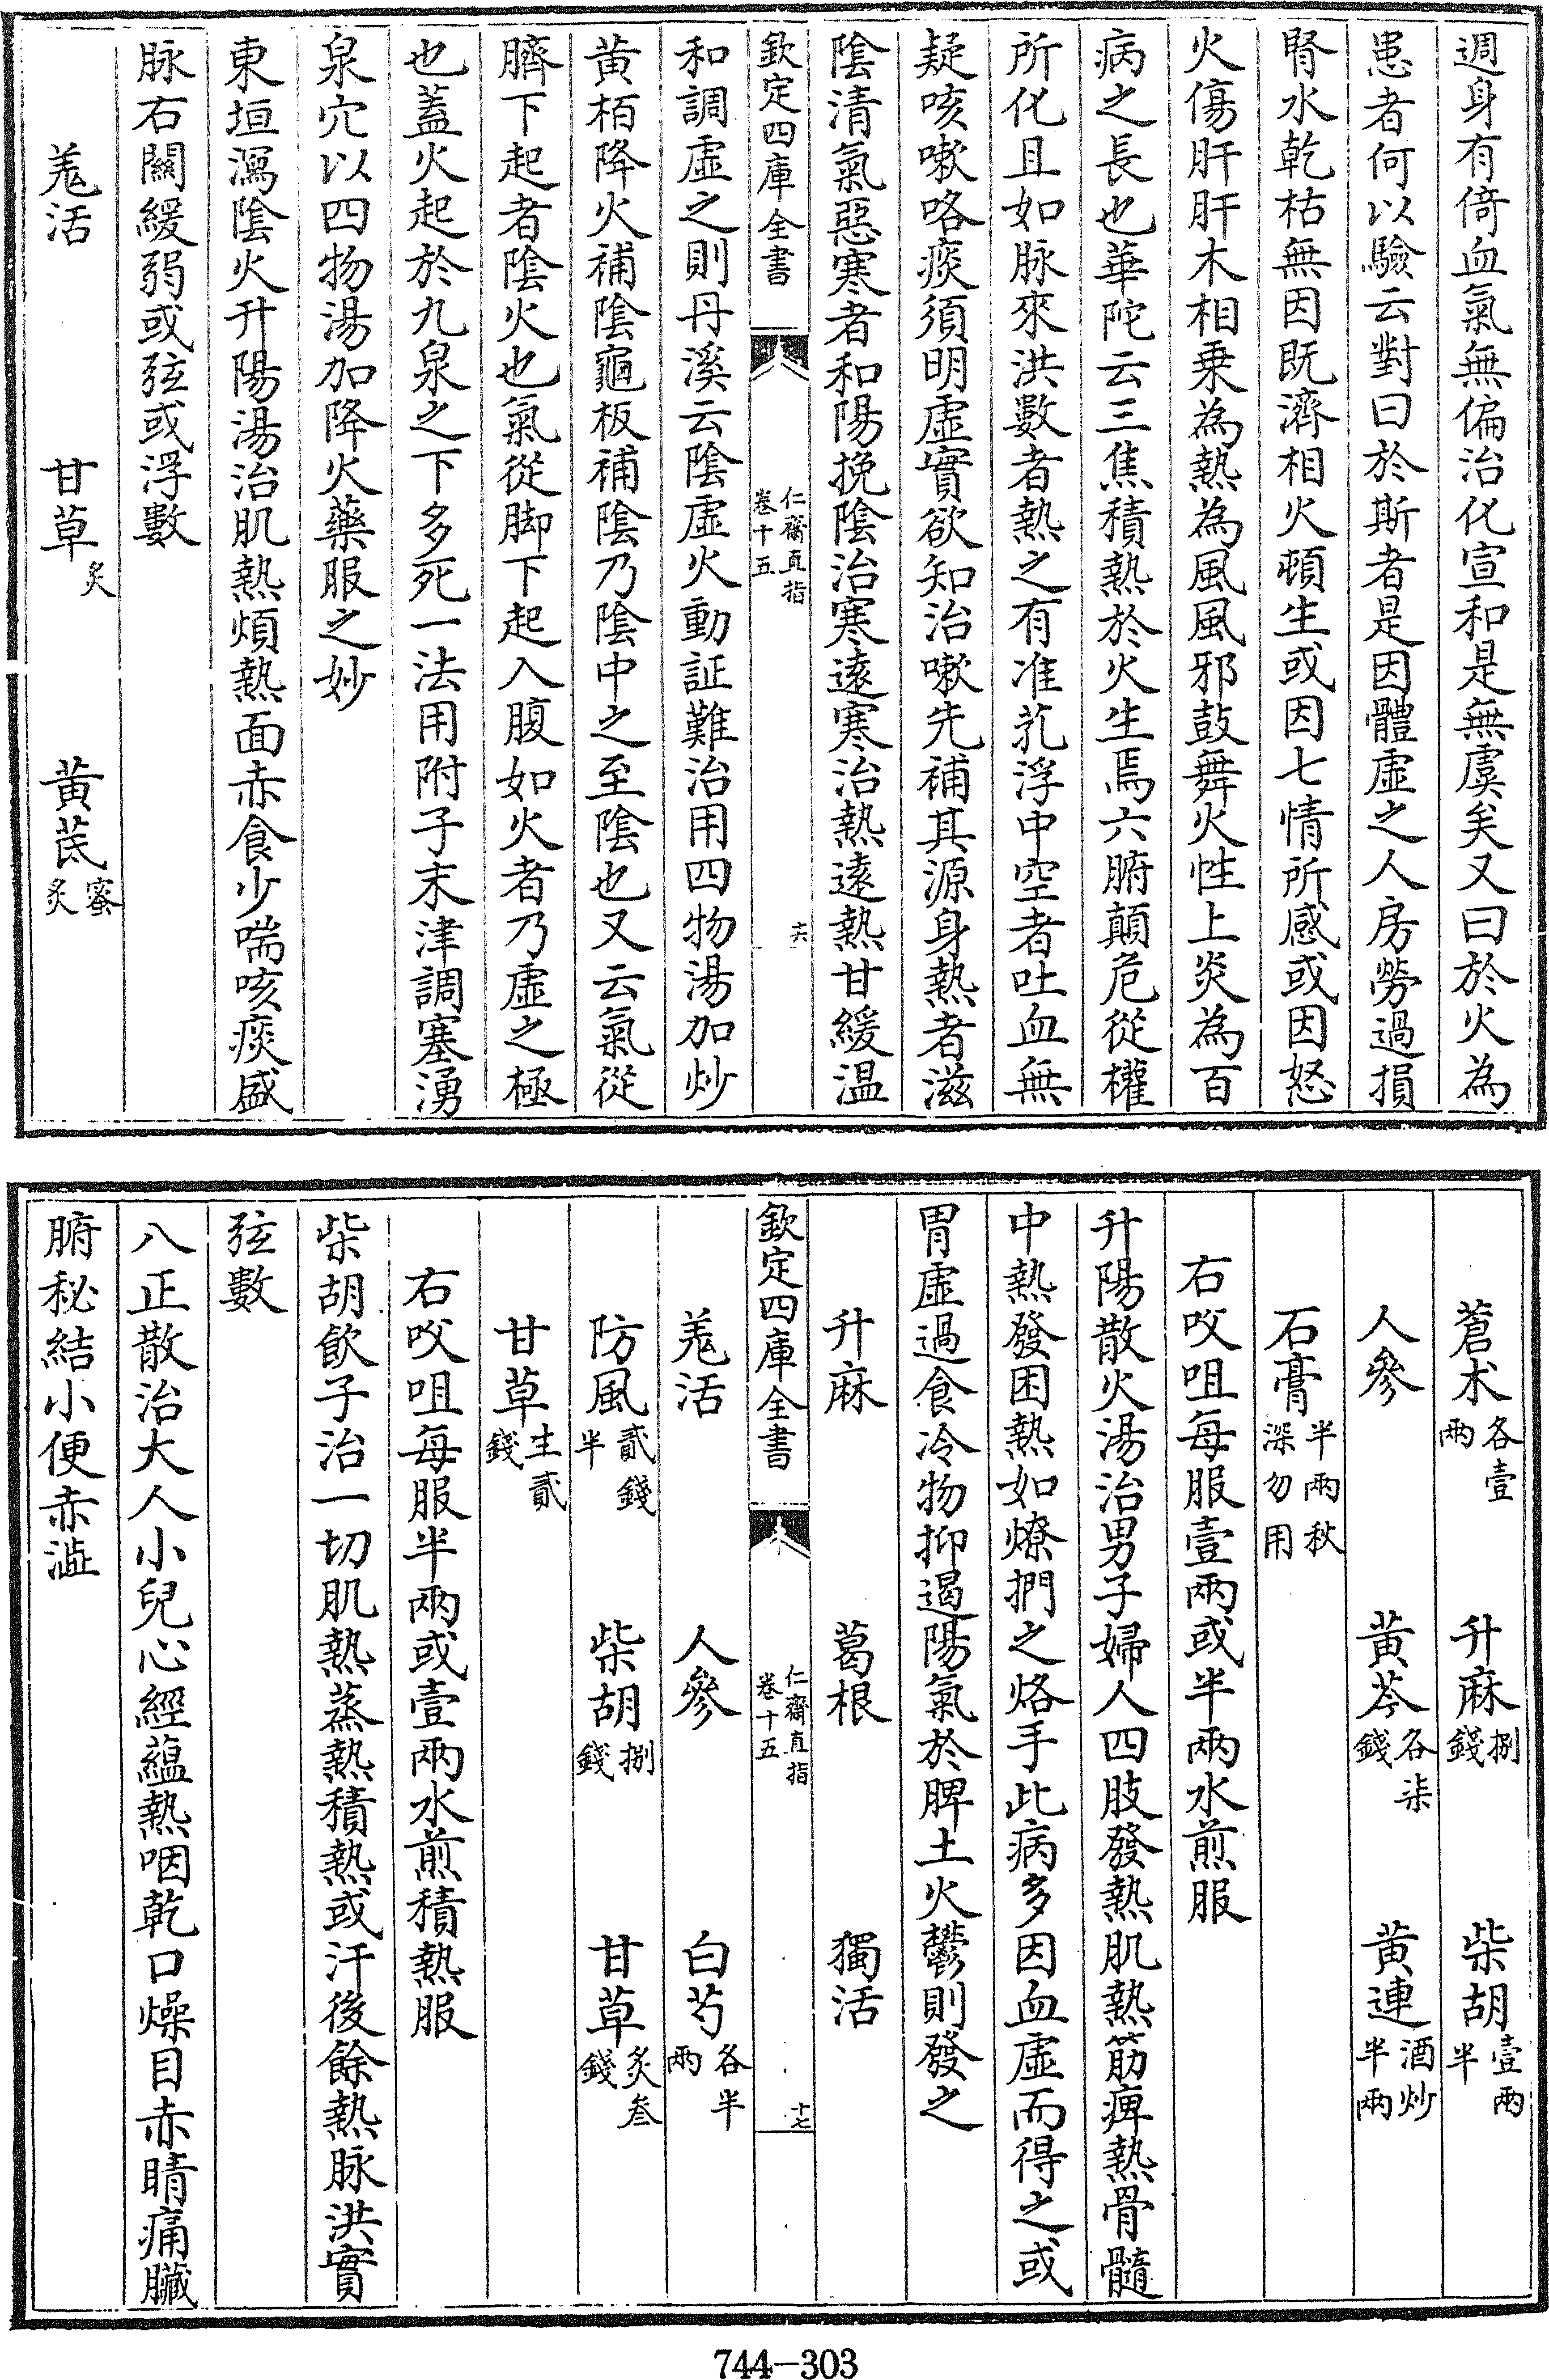 週身有倚血氣無偏治化宣和是無虞矣又曰於火為
患者何以驗云對曰於斯者是因體虛之人房勞過損
腎水乾枯無因既濟相火頓生或因七情所感或因怒
火傷肝肝木相乗為熱為風風邪鼓舞火性上炎為百
病之長也華陀云三焦積熱於火生焉六腑顛危從權
所化且如脉來洪數者熱之有准芤浮中空者吐血無
疑咳嗽咯痰須明虛實欲知治嗽先補其源身熱者滋
陰清氣惡寒者和陽挽陰治寒遠寒治熱遠熱甘緩温
欽定四庫全書 仁齋直指 卷十五 十六
和調虛之則丹溪云陰虛火動証難治用四物湯加炒
黃栢降火補陰龜板補陰乃陰中之至陰也又云氣從
臍下起者陰火也氣從脚下起入腹如火者乃虛之極
也蓋火起於九泉之下多死一法用附子末津調塞湧
泉穴以四物湯加降火藥服之妙
東垣瀉陰火升陽湯治肌熱煩熱面赤食少喘咳痰盛
脉右關緩弱或弦或浮數
羗活 甘草炙 黃芪蜜炙
蒼术各壹兩 升麻捌錢 柴胡壹兩半
人參 黃芩各柒錢 黃連酒炒半兩
石膏半兩秋深勿用
右㕮咀每服壹兩或半兩水煎服
升陽散火湯治男子婦人四肢發熱肌熱筋痺熱骨髓
中熱發困熱如燎捫之烙手此病多因血虛而得之或
胃虛過食冷物抑遏陽氣於脾土火鬱則發之
升麻 葛根 獨活
欽定四庫全書 仁齋直指 卷十五 十七
羗活 人參 白芍各半兩
防風貳錢半 柴胡捌錢 甘草炙叁錢
甘草生貳錢
右㕮咀每服半兩或壹兩水煎積熱服
柴胡飲子治一切肌熱蒸熱積熱或汗後餘熱脉洪實
弦數
八正散治大人小兒心經蘊熱咽乾口燥目赤睛痛臟
腑秘結小便赤澁
744-303